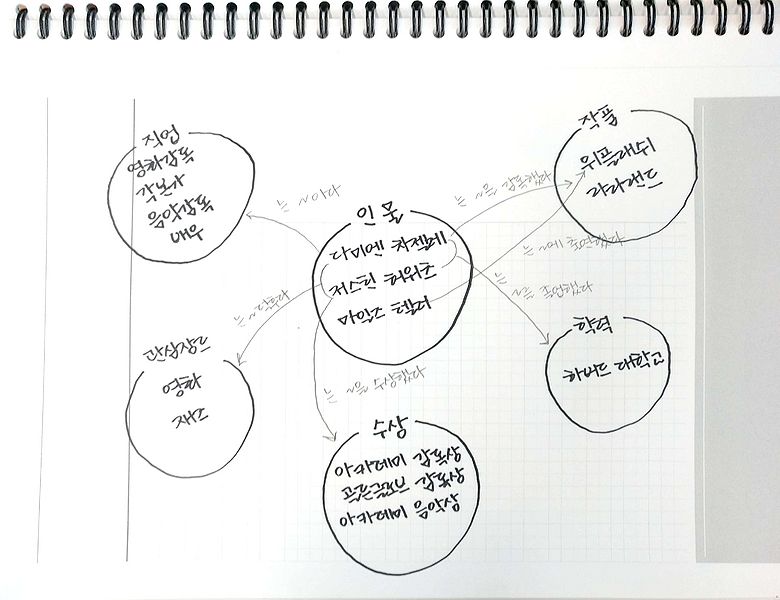 직업
영화감독
각본가
음악감독
배우
작품
위플래쉬
라라랜드
는 ~이다
는 ~을 감독했다
인물
다미엔 차젤레
저스틴 허위츠
마일즈 텔러
는 ~에 출연했다
는 ~를 졸업했다
학력
하버드 대학교
관심장르
영화
재즈
는 ~을 수상했다
수상
아카데미 감독상
골든글로브 감독상
아카데미 음악상